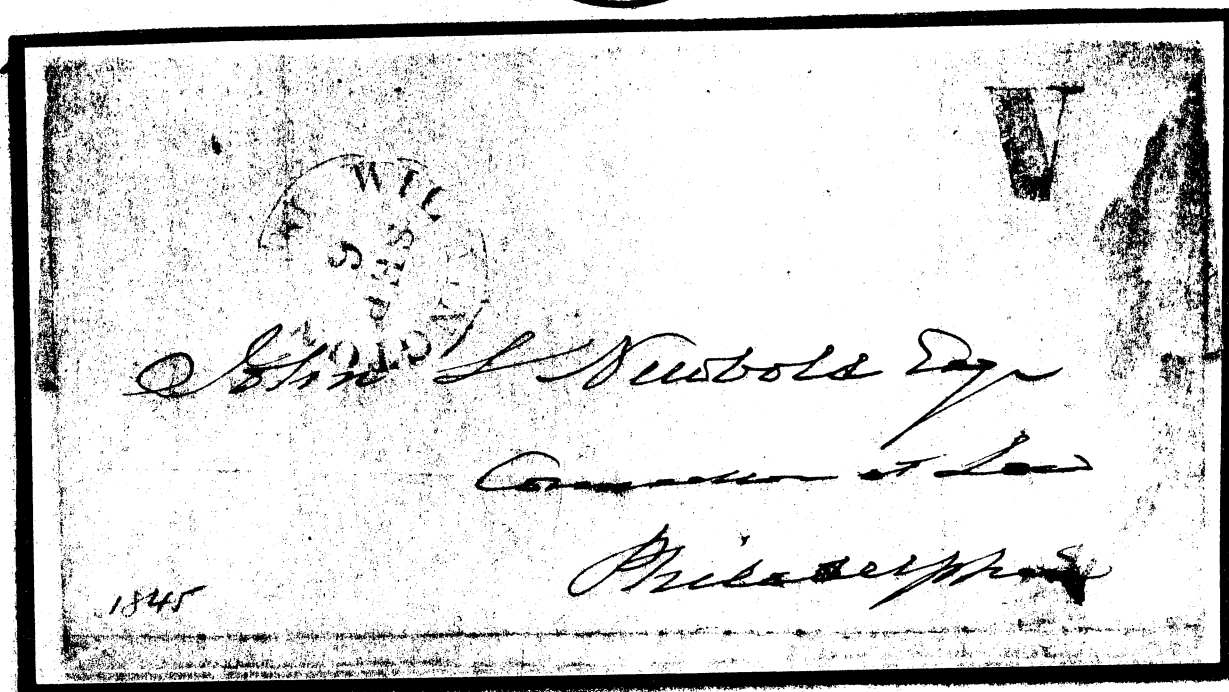 V
WIL
SEP
5
John L Newbold Esqr
Counsellor at Law
Philadelphia
1845